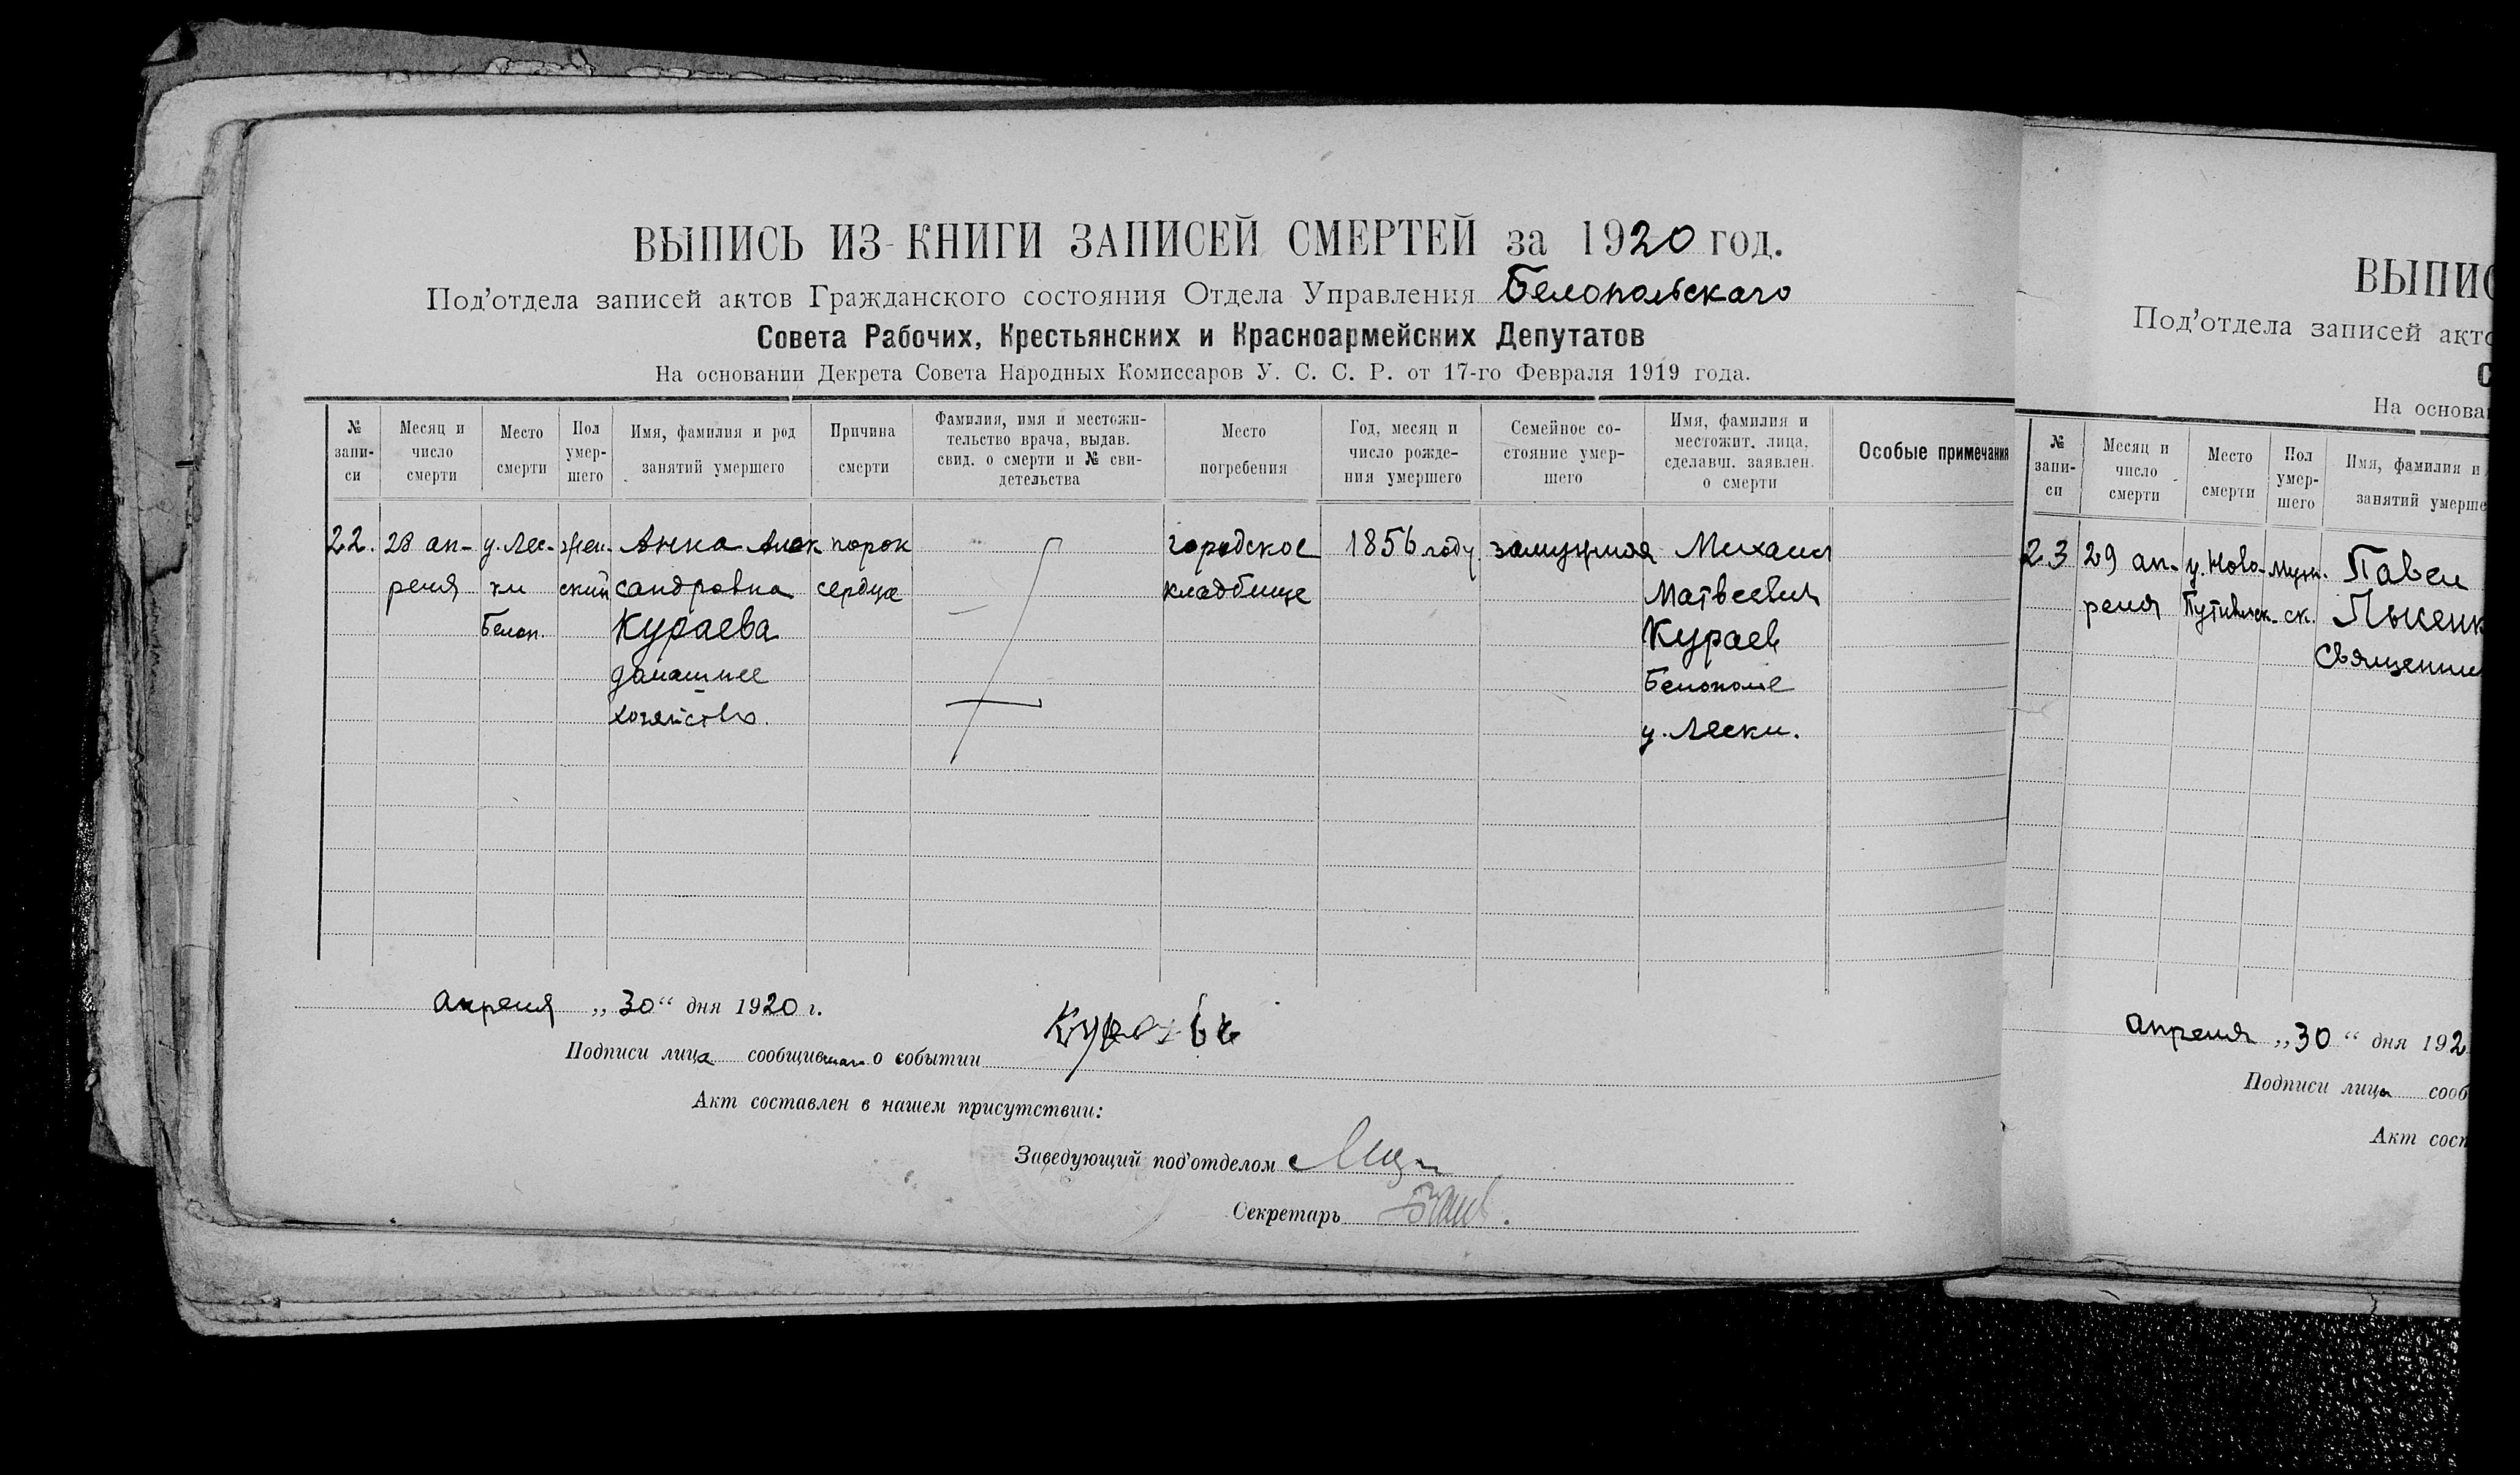 ВЫПИСЬ ИЗ КНИГИ ЗАПИСЕЙ СМЕРТЕЙ за 1920 год.
Под’отдела записей актов Гражданского состояния Отдела Управления Белопольскаго
Совета Рабочих, Крестьянских и Красноармейских Депутатов
На основании Декрета Совета Народных Комиссаров У. С. С. Р. от 17-го Февраля 1919 года.
№ запи- си
Месяц и число смерти
Место смерти
Пол умер- шего
Имя, фамилия и род занятий умершего
Причина смерти
Фамилия, имя и местожи- тельство врача, выдав. свид. о смерти и № сви- детельства
Место погребения
Год, месяц и число рожде- ния умершего
Семейное со- стояние умер- шего
Имя, фамилия и местожит. лица, сделавш. заявлен. о смерти
Особые примечания
22. 28 ап- у. Лес- жен- Анна Алек порок городское 1856 году. замужняя Михаил
реля ки ский сандровна сердца кладбище Матвеевич
Белоп. Кураева Кураев
домашнее Белополье
хозяйство. у. Лески.
апреля „30“ дня 1920 г.
Подписи лица сообщившаго о событии
Акт составлен в нашем присутствии:
Заведующий под’отделом
Секретарь
ВЫПИС
Под’отдела записей акто
С
На основа
№ запи- си
Месяц и число смерти
Место смерти
Пол умер- шего
Имя, фамилия и занятий умерше
23 29 ап- у. Ново- муж. Павел
реля Путивльск. ск.
Священни
апреля „30“ дня 192
Подписи лица сооб
Акт сост